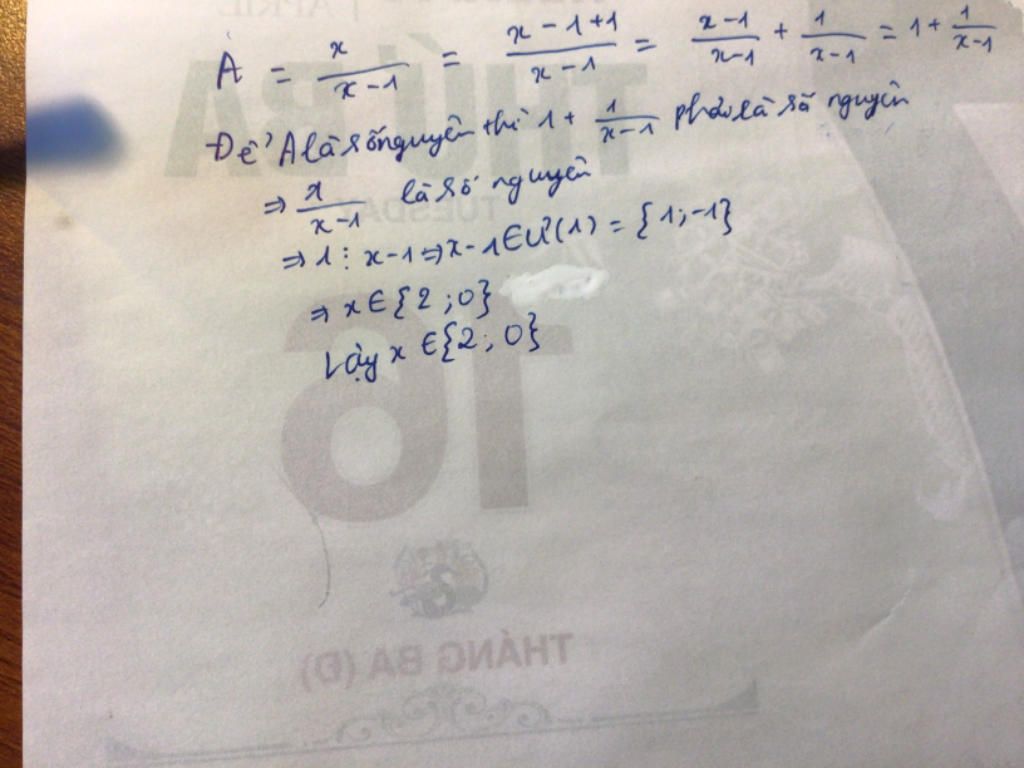 A = x/(x-1) = (x-1+1)/(x-1) = (x-1)/(x-1) + 1/(x-1) = 1 + 1/(x-1)
Để A là số nguyên thì 1 + 1/(x-1) phải là số nguyên
⇒ 1/(x-1) là số nguyên
⇒ 1 ⋮ x-1 ⇒ x-1 ∈ Ư(1) = {1; -1}
⇒ x ∈ {2; 0}
Vậy x ∈ {2; 0}
APRIL
THỨ BA
TUESDAY
16
THÁNG BA (Đ)